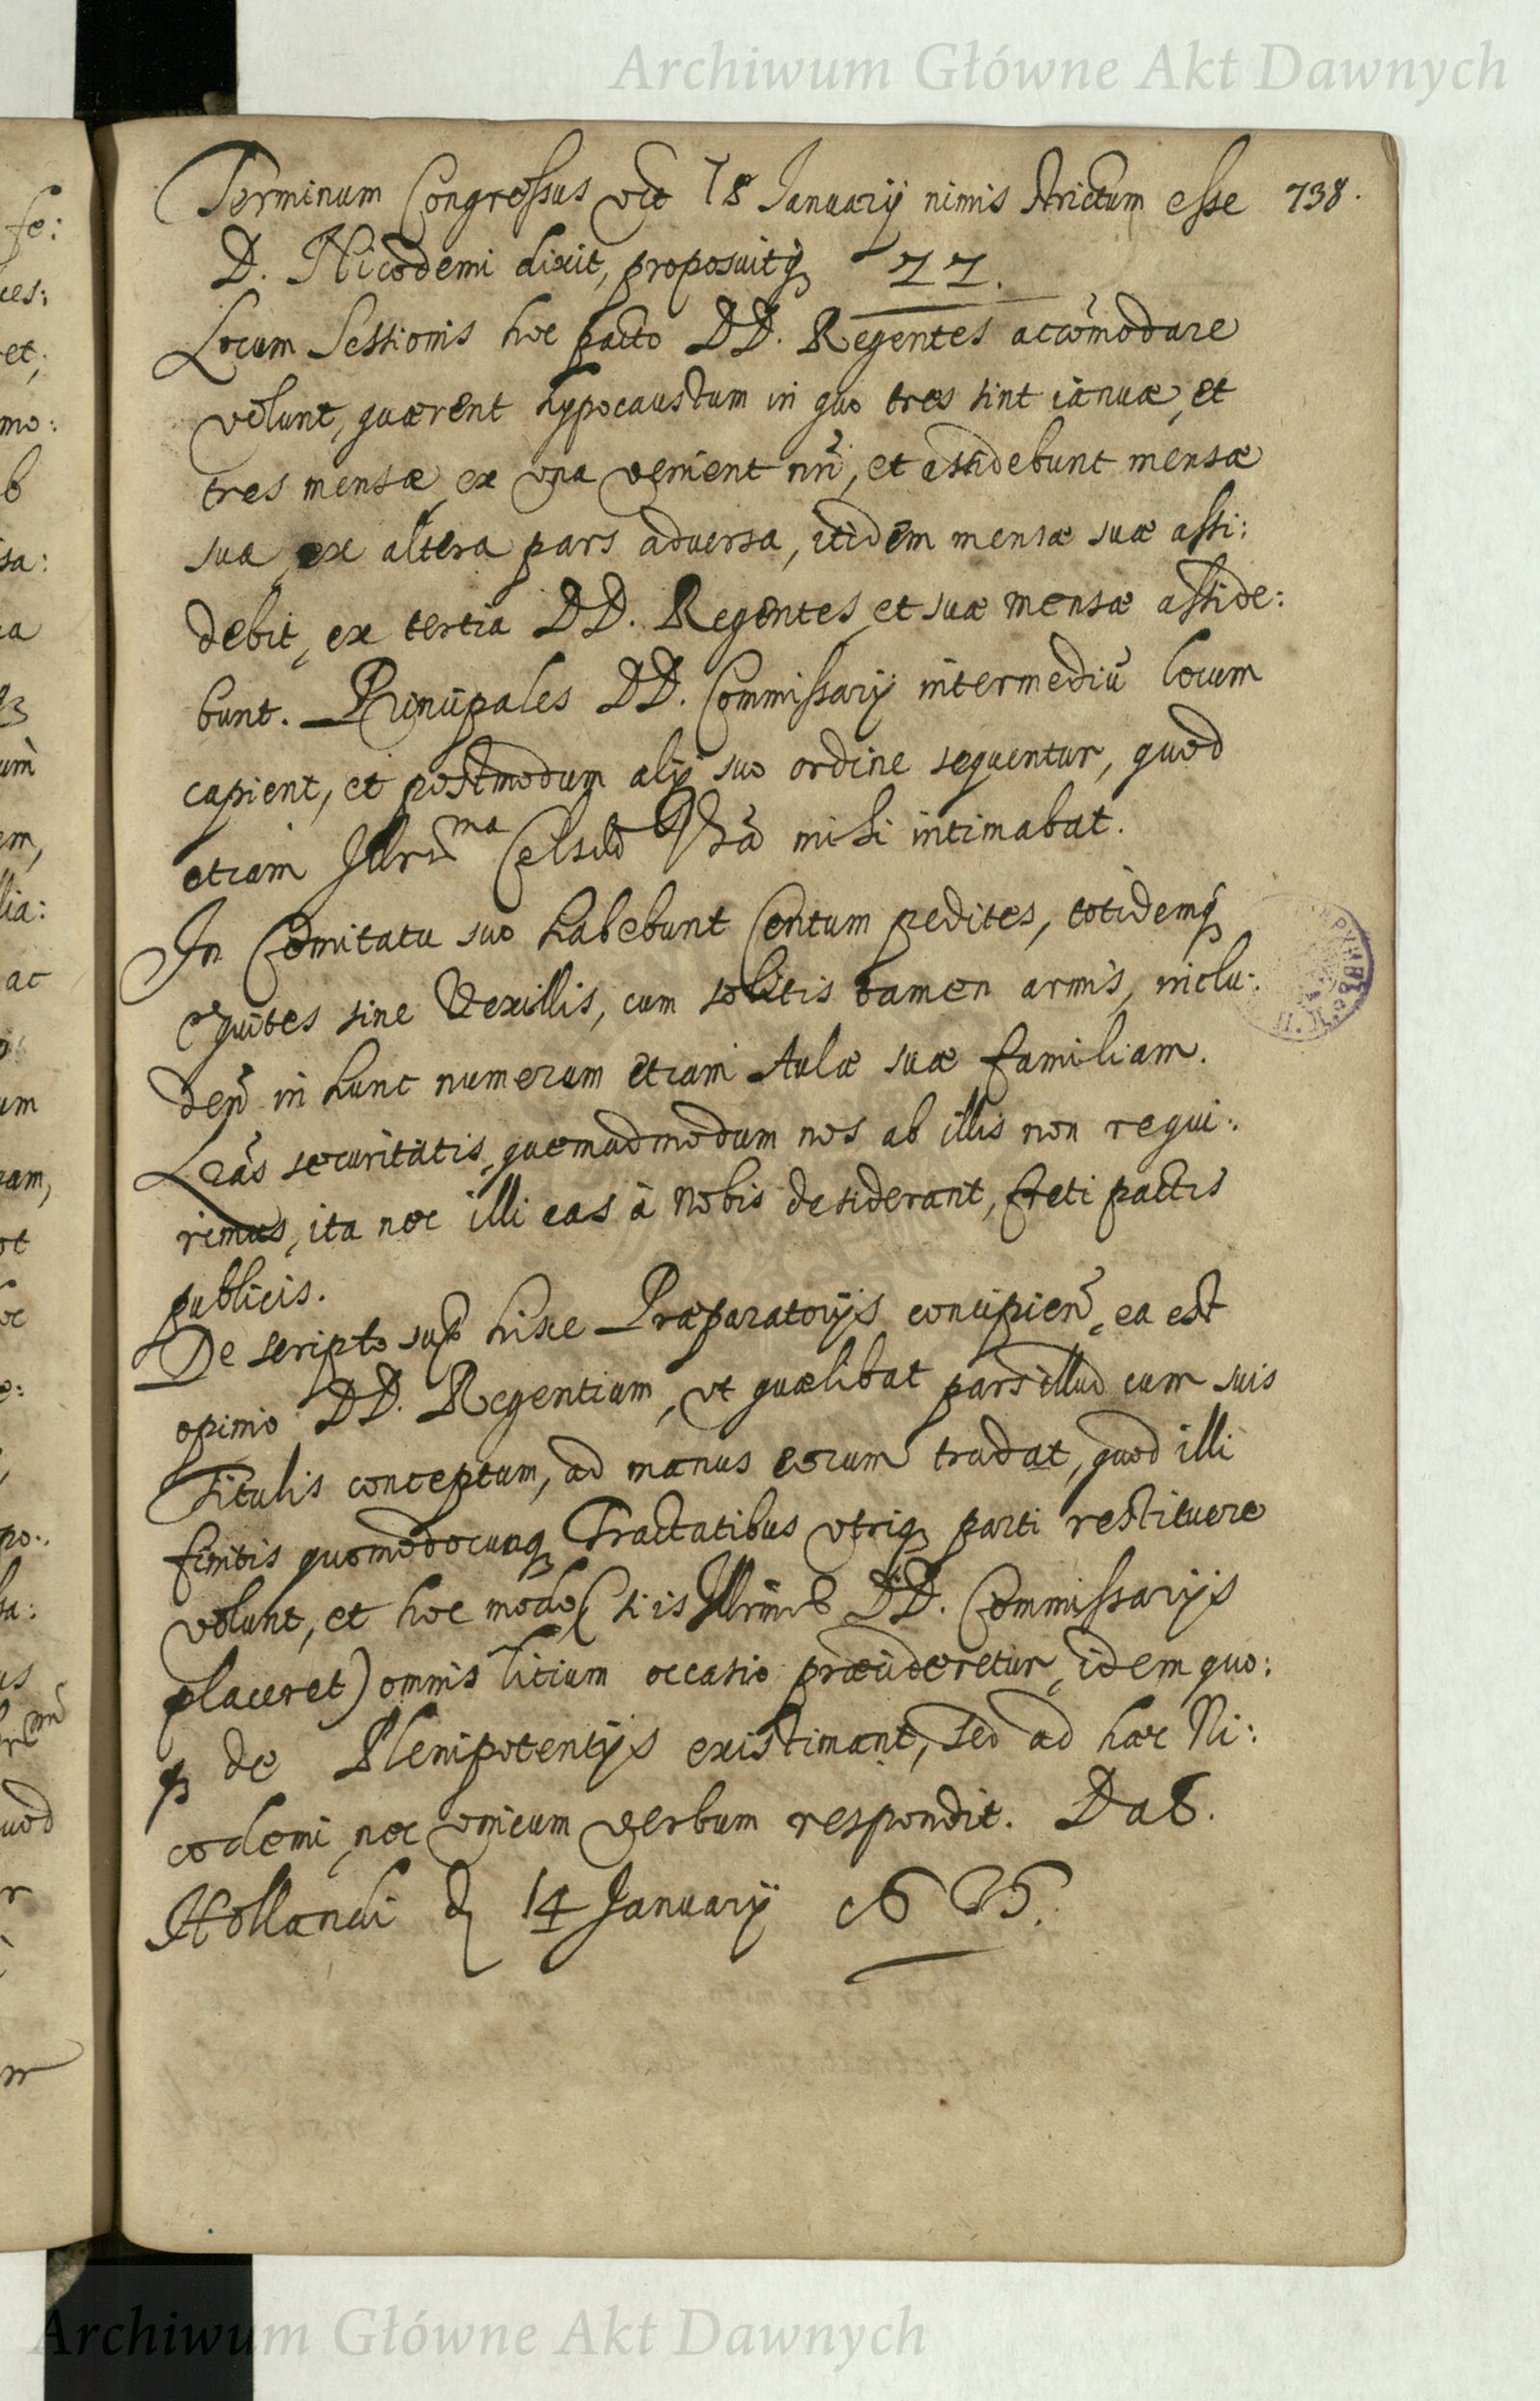 Archiwum Główne Akt Dawnych
Terminum Congressus vel 18 Januarij nimis strictum esse 138.
D. Nicodemi dixit, proposuitq
Locum Sessionis hoc pacto DD. Regentes accōmodare
volunt, quærent hypocaustum in quo tres sint ianuæ, et
tres mensæ, ex vna venient nr̄i, et assidebunt mensæ
suæ, ex altera pars aduersa, itidem mensæ suæ assi:
debit, ex tertia DD. Regentes et suæ mensæ asside:
bunt. Principales DD. Commissarij intermediū locum
capient, et postmodum alij suo ordine sequentur, quod
etiam Illrm̄a Celsitdo Vrā mihi intimabat.
In Comitatu suo habebunt Centum pedites, totidemq
equites sine Vexillis, cum solitis tamen armis, inclu:
den̄ in hunc numerum etiam Aulæ suæ familiam.
Lrās securitatis, quemadmodum nos ab illis non requi:
rimus, ita nec illi eas à Nobis desiderant, freti pactis
publicis.
De scripto sup hisce Præparatorijs concipien̄, ea est
opinio DD. Regentium, vt quælibat pars illud cum suis
titulis conceptum, ad manus eorum tradat, quod illi
finitis quomodocunq Tractatibus vtriq parti restituere
volunt, et hoc modo (si is Illrm̄is DD. Commissarijs
placeret) omnis litium occasio præcideretur, idem quo:
q de Plenipotentijs existimant, sed ad hæc Ni:
codemi nec vnicum verbum respondit. Dat.
Hollandi d 14 Januarij 1635.
Archiwum Główne Akt Dawnych